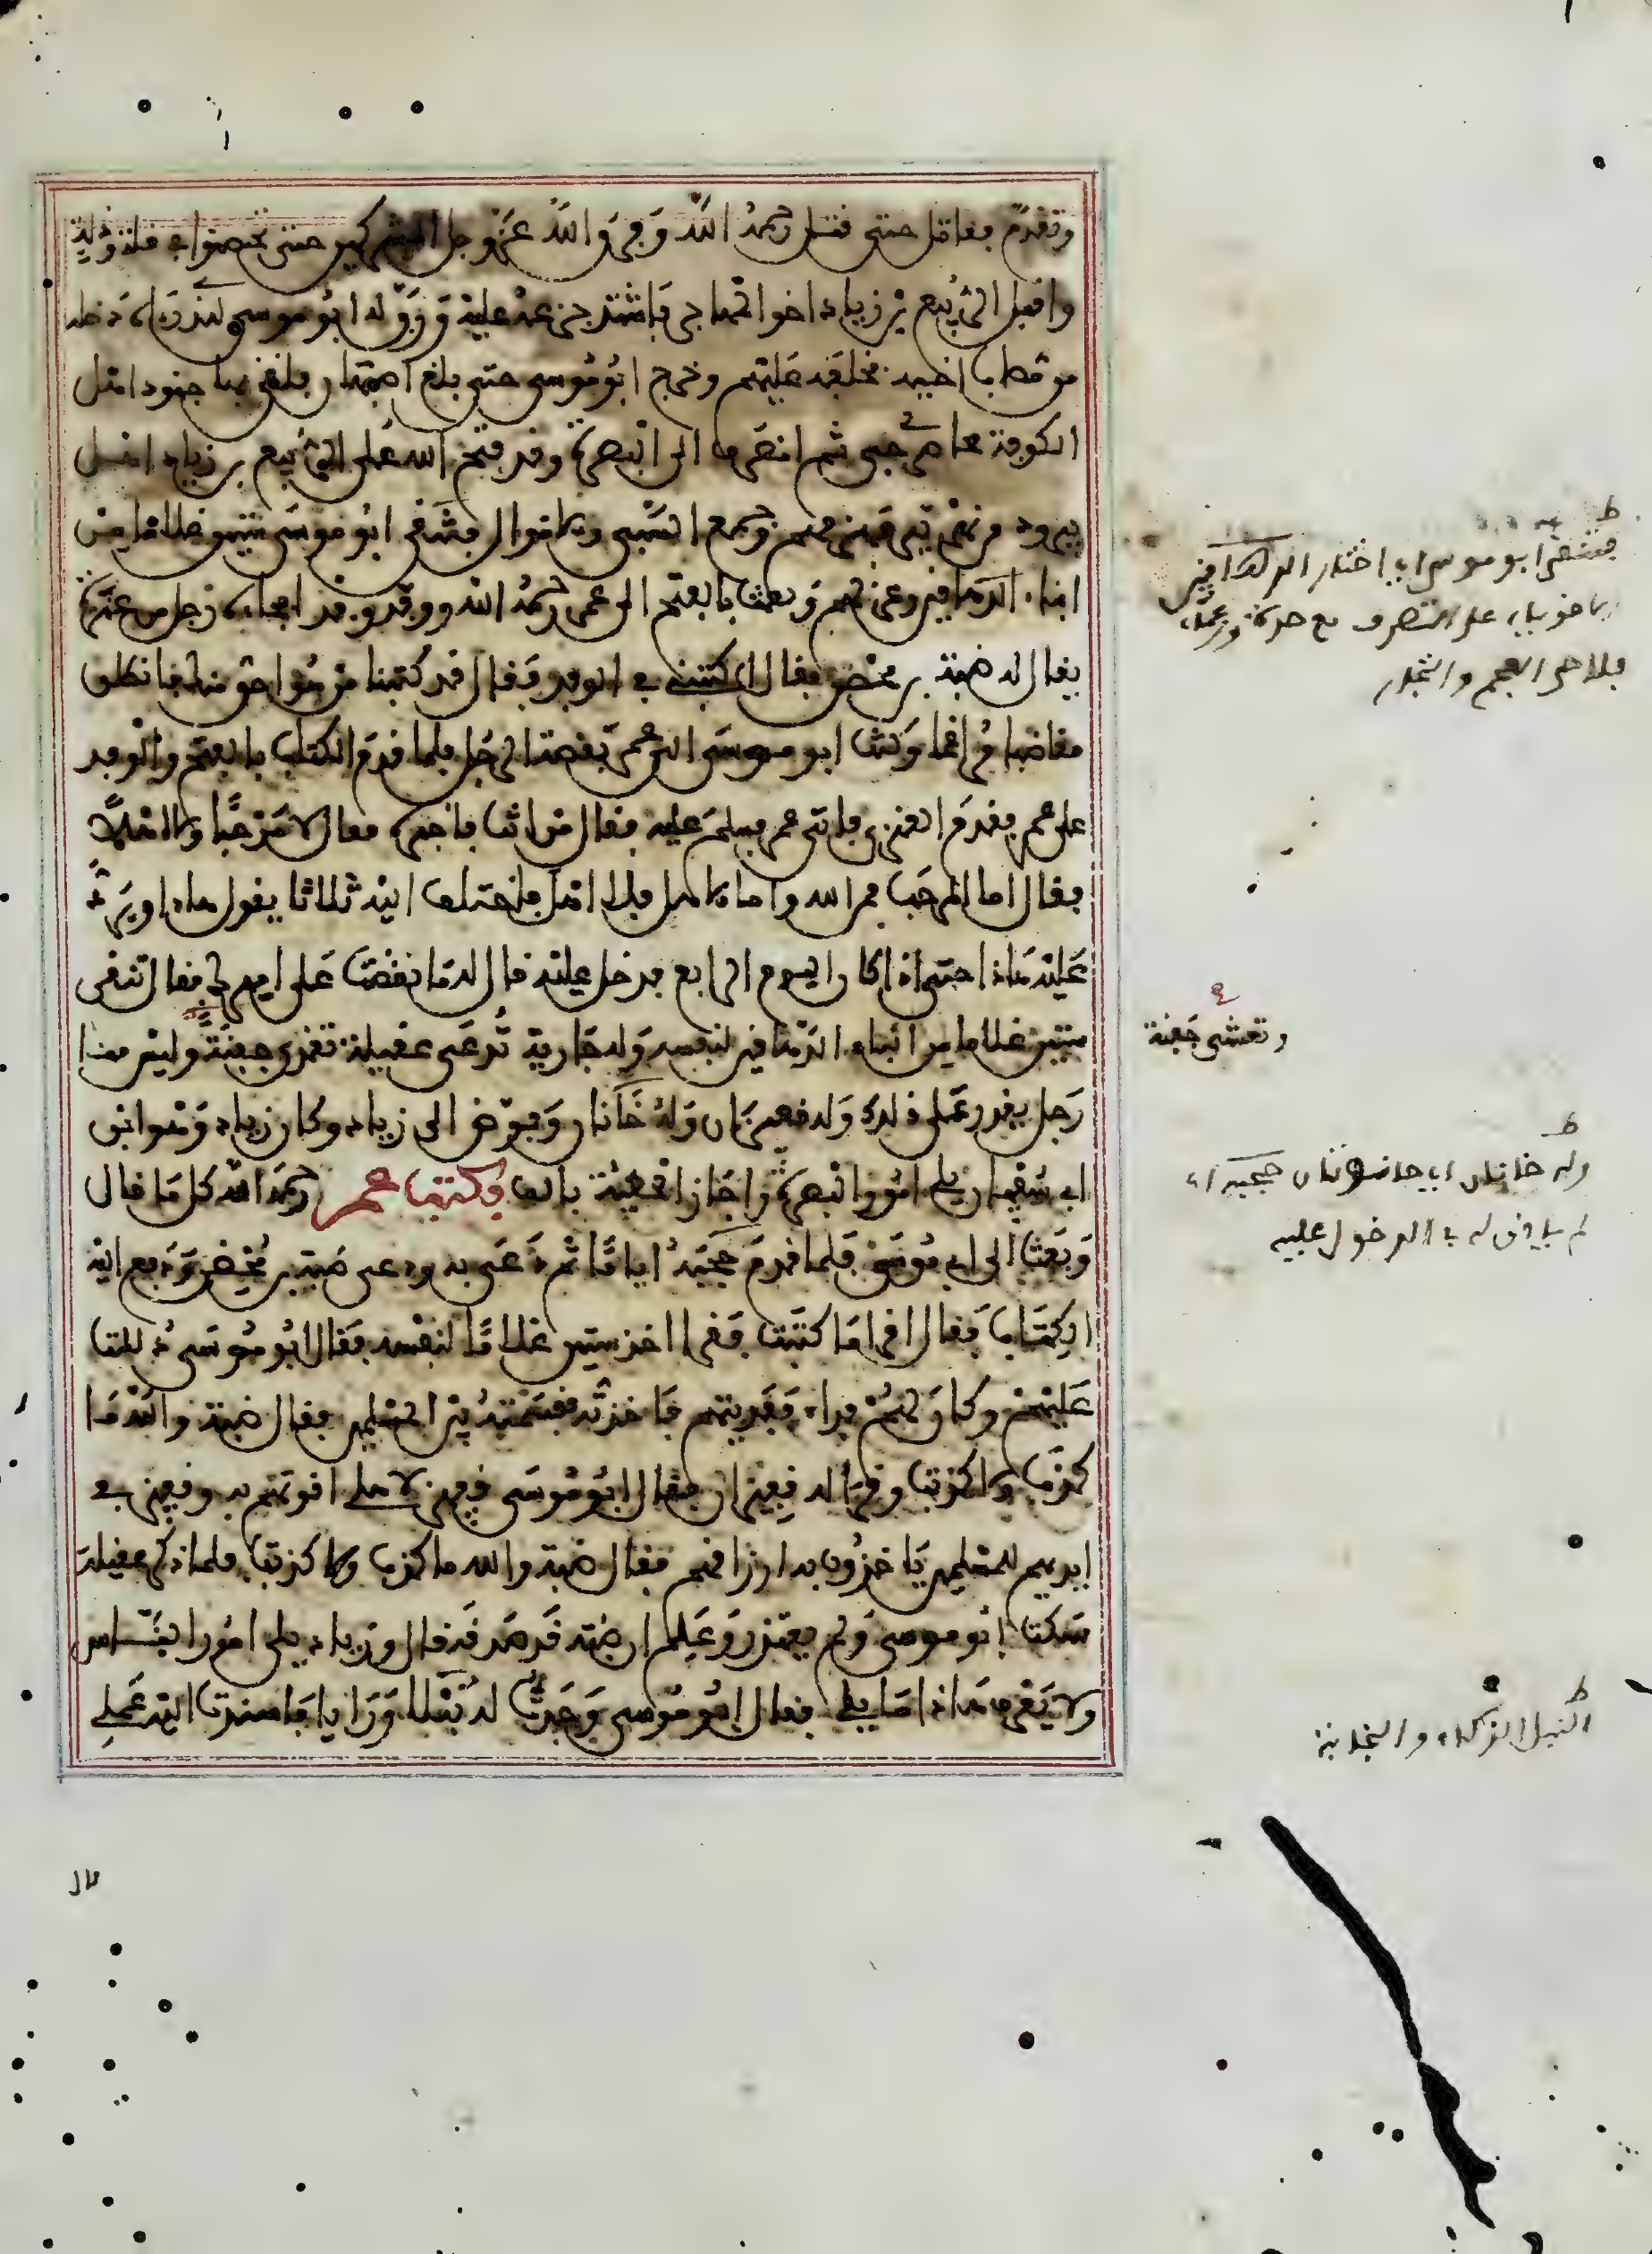 وتقدم فقاتل حتى قتل رحمه الله وفرق الله عز وجل المشركين حتى تحصنوا في قلة وذلة
واقبل الربيع بن زياد اخو المهاجر فاشتد جزعه عليه ورق له ابو موسى للذي رءاه دخله
من مصاب اخيه فخلفه عليهم وخرج ابو موسى حتى بلغ اصبهان فلقي بها جنود اهل
الكوفة محاصري جي ثم انصرف الى البصرة وقد فتح الله على الربيع بن زياد اهل
بيروذ من نهر تيرى فهزمهم وجمع السبي والاموال فتنقى ابو موسى ستين غلاما من
ابناء الدهاقين وعزلهم وبعث بالفتح الى عمر رحمه الله ووفد وفدا فجاءه رجل من عنزة
يقال له ضبة بن محصن فقال اكتبني في الوفد فقال قد كتبنا من هو احق منك فانطلق
مغاضبا مراغما وكتب ابو موسى الى عمر بقصة الرجل فلما قدم الكتاب بالفتح والوفد
على عمر فقدم العنزي فاتى عمر فسلم عليه فقال من انت فاخبره فقال لا مرحبا ولا اهلا
فقال اما المرحب فمن الله واما الاهل فلا اهل فاختلف اليه ثلاثا يقول هاذا ويرد
عليه هاذا حتى اذا كان اليوم الرابع فدخل عليه قال له ما نقمت على اميرك فقال تنقى
ستين غلاما من ابناء الدهاقين لنفسه وله جارية تدعى عقيلة تغذى جفنة وليس منا
رجل يقدر على ذلك وله قفيزان وله خاتمان وفوض الى زياد وكان زياد هو ابن
ابي سفيان يلي امور البصرة واجاز الحطيئة بالف فكتب عمر رحمه الله كل ما قال
وبعث الى ابي موسى فلما قدم حجبه اياما ثم دعى به ودعى ضبة بن محصن ودفع اليه
الكتاب فقال اقرا ما كتبت فقرا اخذ ستين غلاما لنفسه فقال ابو موسى دللت
عليهم وكان لهم فداء ففديتهم فاخذته فقسمته بين المسلمين فقال ضبة والله ما
كذب ولا كذبت وقرا له قفيزان فقال ابو موسى قفيز لاهلي اقوتهم به وقفيز في
ايديهم للمسلمين ياخذون به ارزاقهم فقال ضبة والله ما كذب ولا كذبت فلما ذكر عقيلة
سكت ابو موسى ولم يعتذر وعلم ان ضبة قد صدقه قال وزياد يلي امور الناس
ولا يعرف هاذا ما يلي فقال ابو موسى وجدت له نبلا ورايا فاسندت اليه عملي
فتنقى ابو موسى اي اختار الدهاقين
وتعشى جفنة
وله خاتمان
لم ياذن له في الدخول عليه
النبل الذكاء والنجابة